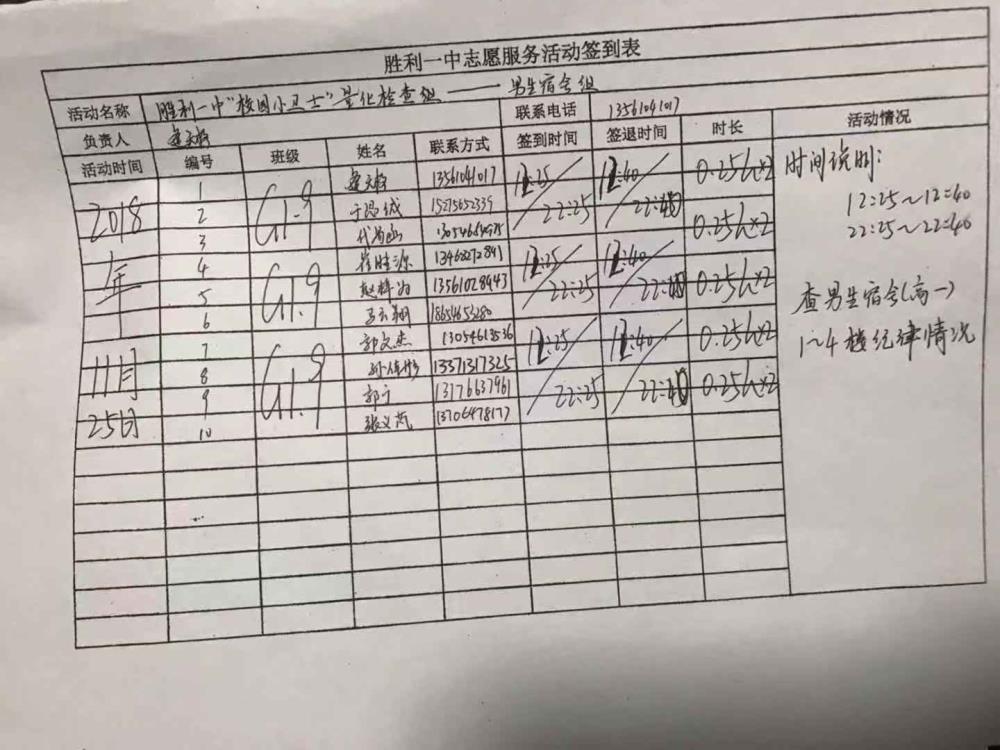 胜利一中志愿服务活动签到表
活动名称 胜利一中"校园小卫士"量化检查组——男生宿舍组
负责人 联系电话 13561041017
活动时间 编号 班级 姓名 联系方式 签到时间 签退时间 时长 活动情况
2018年11月25日
1 G1.9 13561041017 12:25/22:25 12:40/22:40 0.25h×2
2 15275652339
3 0.25h×2
4 G1.9 崔胜源 12:25/22:25 12:40/22:40
5 13561028443 0.25h×2
6 18654653280
7 G1.9 郭文杰 13054613536 12:25/22:25 12:40/22:40 0.25h×2
8 13371317325
9 郭宁 13176637961 0.25h×2
10 13706478177
时间说明:
12:25~12:40
22:25~22:40
查男生宿舍(高一)
1~4楼纪律情况